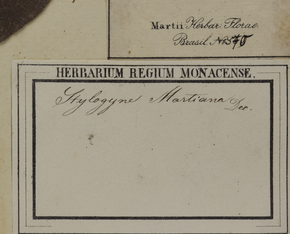 Martii Herbar. Florae
Brasil. No 570
HERBARIUM REGIUM MONACENSE.
Stylogyne Martiana Dec.